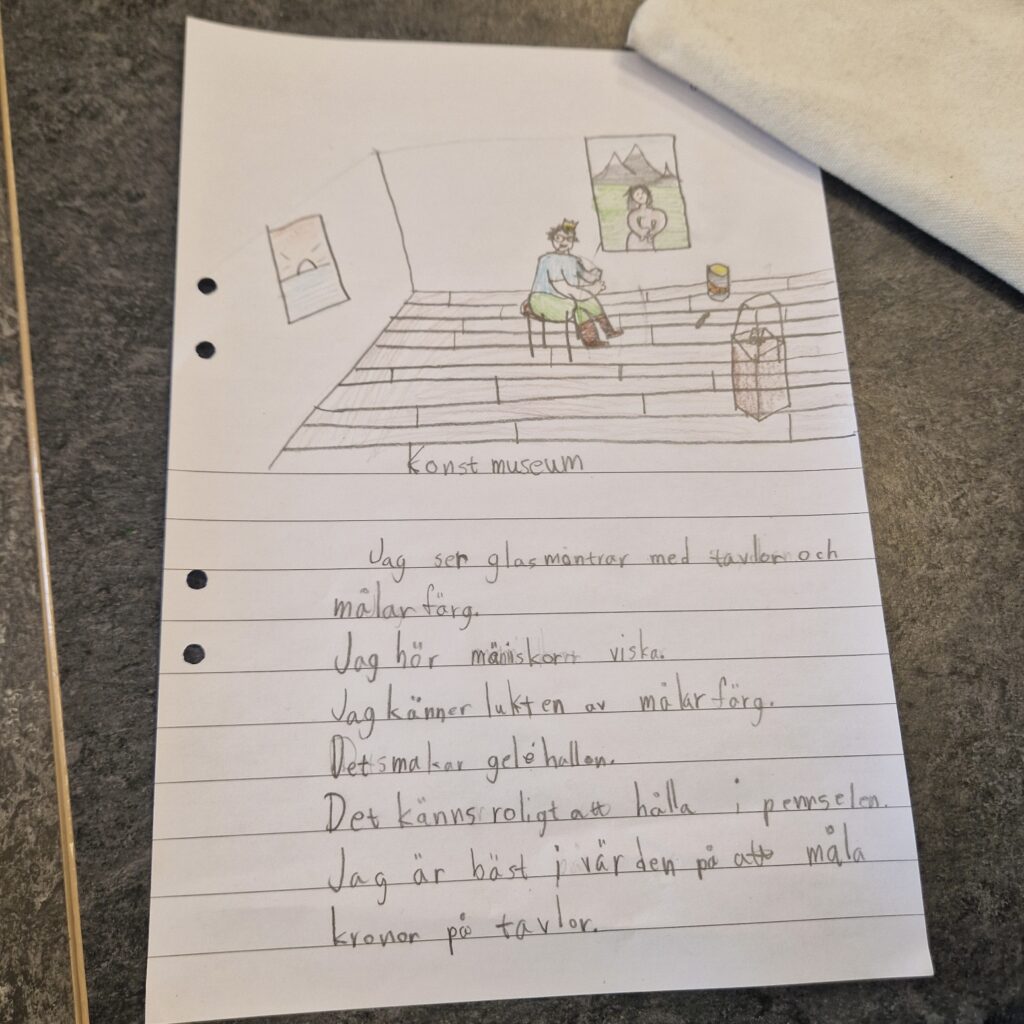 Konst museum
Jag ser glasmontrar med tavlor och
målarfärg.
Jag hör mäniskor viska.
Jag känner lukten av målarfärg.
Det smakar geléhallon.
Det känns roligt att hålla i pennselen.
Jag är bäst i värden på att måla
kronor på tavlor.